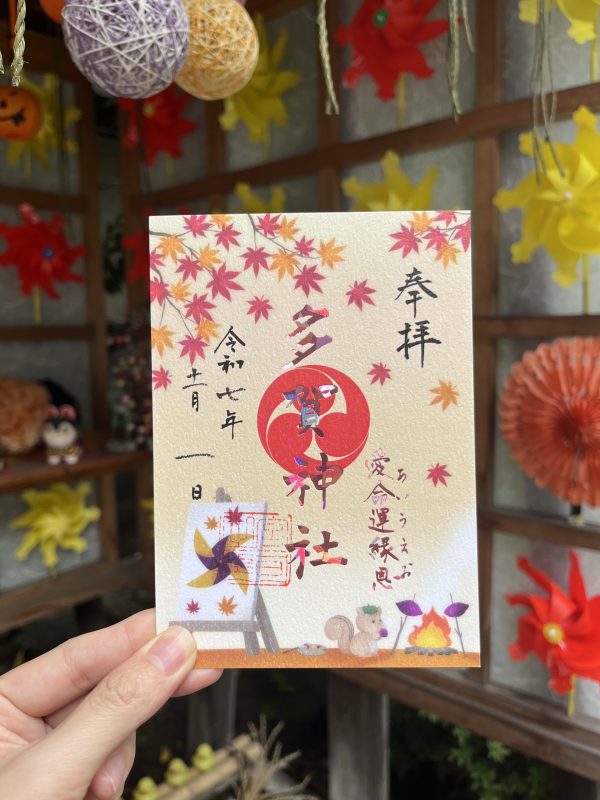 奉拝
多賀神社
愛命運縁恩
あいうえお
令和七年
十一月一日